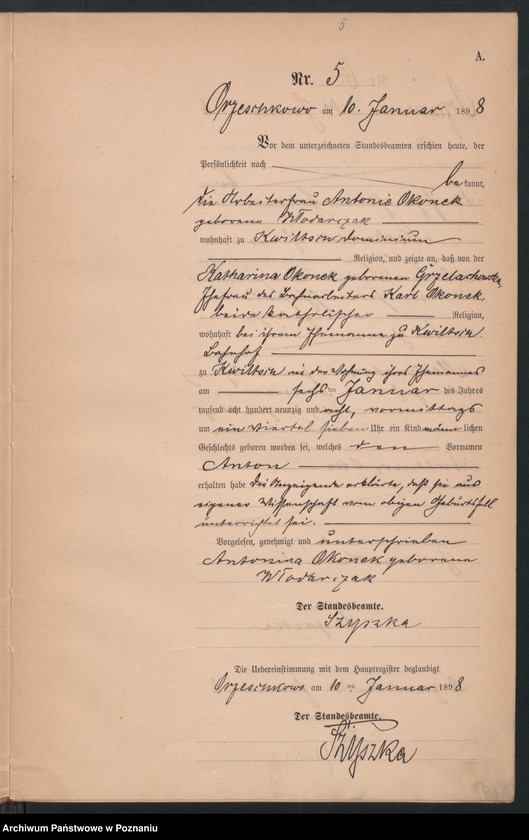 5
A.
Nr. 5
Orzeschkowo am 10. Januar 1898
Vor dem unterzeichneten Standesbeamten erschien heute, der
Persönlichkeit nach
bekannt,
die Arbeiterfrau Antonie Okonek
geborene Włodarczak
wohnhaft zu Kwiltsch Dominium
Religion, und zeigte an, daß von der
Katharina Okonek geborenen Grzelachowska,
Ehefrau des Bahnarbeiters Karl Okonek,
beide katholischer Religion,
wohnhaft bei ihrem Ehemanne zu Kwiltsch
Bahnhof
zu Kwiltsch in der Wohnung ihres Ehemannes
am sechsten Januar des Jahres
tausend acht hundert neunzig und acht, vormittags
um ein Viertel sieben Uhr ein Kind männlichen
Geschlechts geboren worden sei, welches den Vornamen
Anton
erhalten habe Die Anzeigende erklärte, daß sie aus
eigener Wissenschaft vom obigen Geburtsfall
unterrichtet sei.
Vorgelesen, genehmigt und unterschrieben
Antonina Okonek geborene
Włodarczak
Der Standesbeamte.
Szyszka
Die Uebereinstimmung mit dem Hauptregister beglaubigt
Orzeschkowo am 10 ten Januar 1898
Der Standesbeamte.
Szyszka
Archiwum Państwowe w Poznaniu